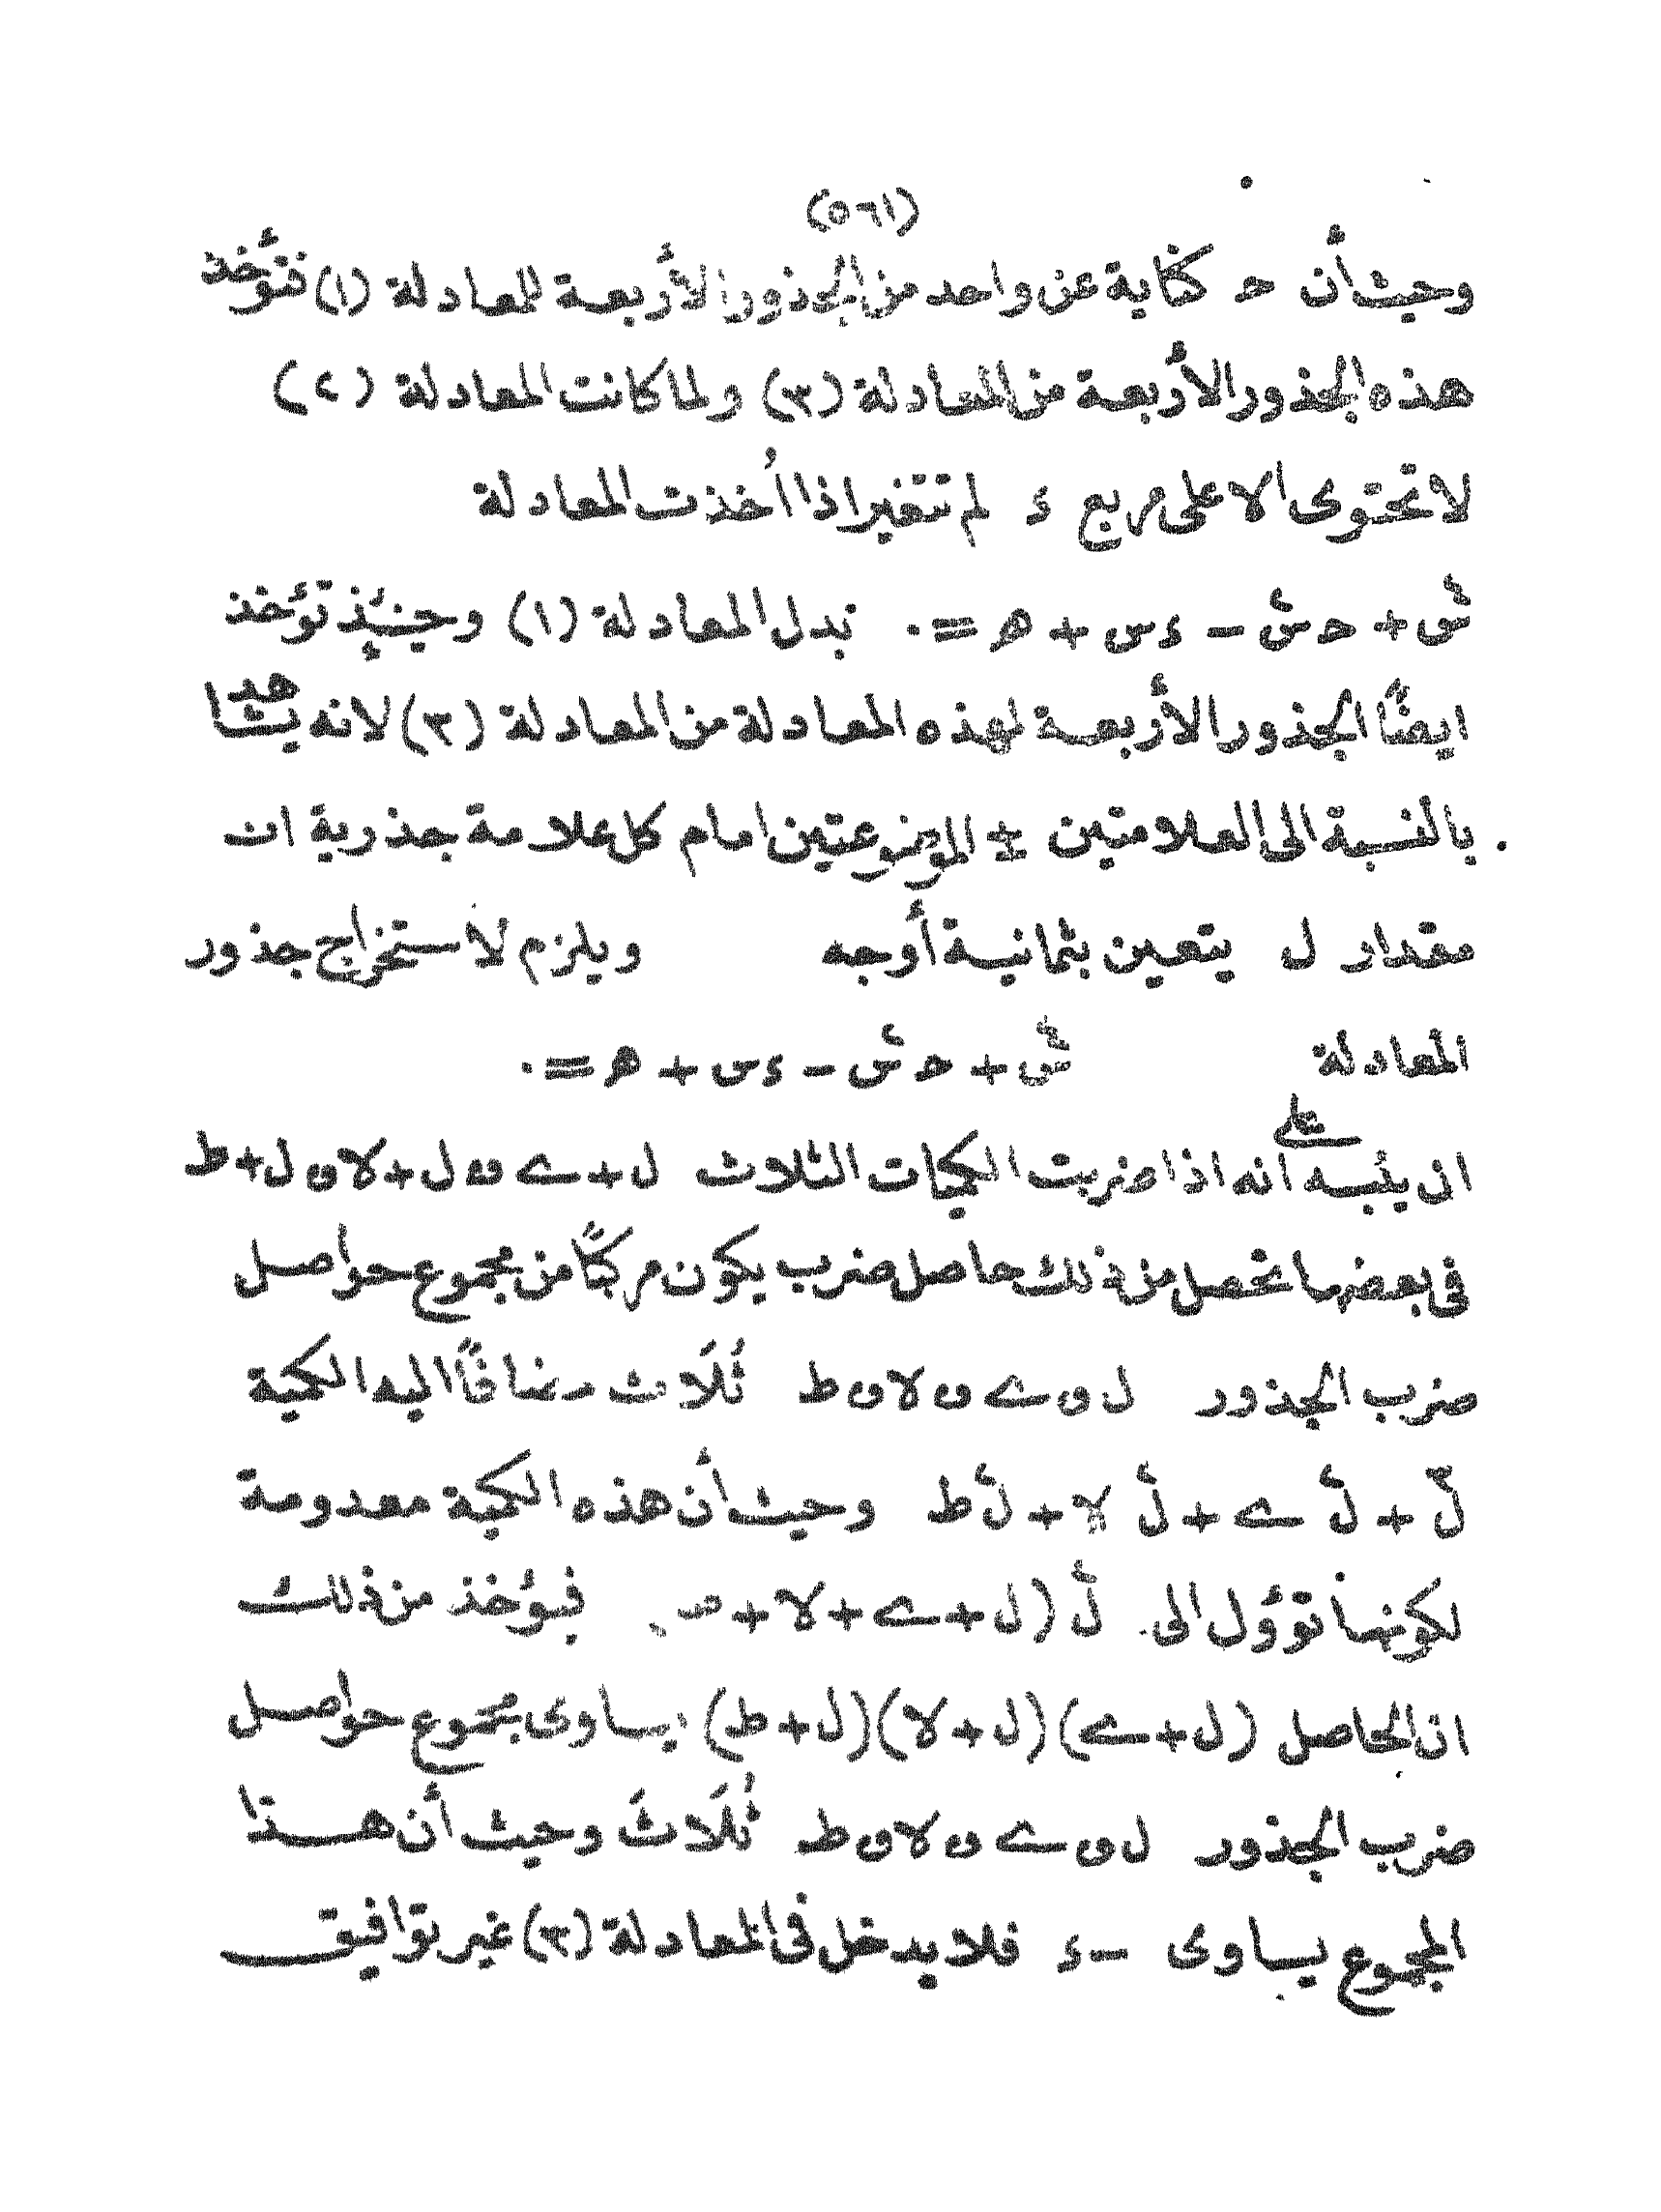 (٥٦١)
وحيث أن حـ كناية عن واحد من الجذور الأربعة للمعادلة (١) فتؤخذ
هذه الجذور الأربعة من المعادلة (٣) ولما كانت المعادلة (٢)
لا تحتوى الا على مربع ء لم تتغير اذا أخذت المعادلة
س٤ + حـ س٢ − ء س + هـ = ٠ بدل المعادلة (١) وحينئذ تؤخذ
ايضًا الجذور الأربعة لهذه المعادلة من المعادلة (٣) لانه يشاهد
بالنسبة الى العلامتين ± الموضوعتين امام كل علامة جذرية ان
مقدار ل يتعين بثمانية أوجه ويلزم لاستخراج جذور
المعادلة س٤ + حـ س٢ − ء س + هـ = ٠
ان ينبه على أنه اذا ضربت الكميات الثلاث ل + ے و ل + لا و ل + ط
فى بعضها تحصل من ذلك حاصل ضرب يكون مركبًا من مجموع حواصل
ضرب الجذور ل و ے و لا و ط ثُلَاث مضافًا اليه الكمية
ل٣ + ل٢ ے + ل٢ لا + ل٢ ط وحيث أن هذه الكمية معدومة
لكونها تؤول الى ل٢ (ل + ے + لا + فيؤخذ من ذلك
ان الحاصل (ل + ے) (ل + لا) (ل + ط) يساوى مجموع حواصل
ضرب الجذور ل و ے و لا و ط ثُلَاثَ وحيث أن هذا
المجموع يساوى − ء فلا يدخل فى المعادلة (٣) غير توافيق